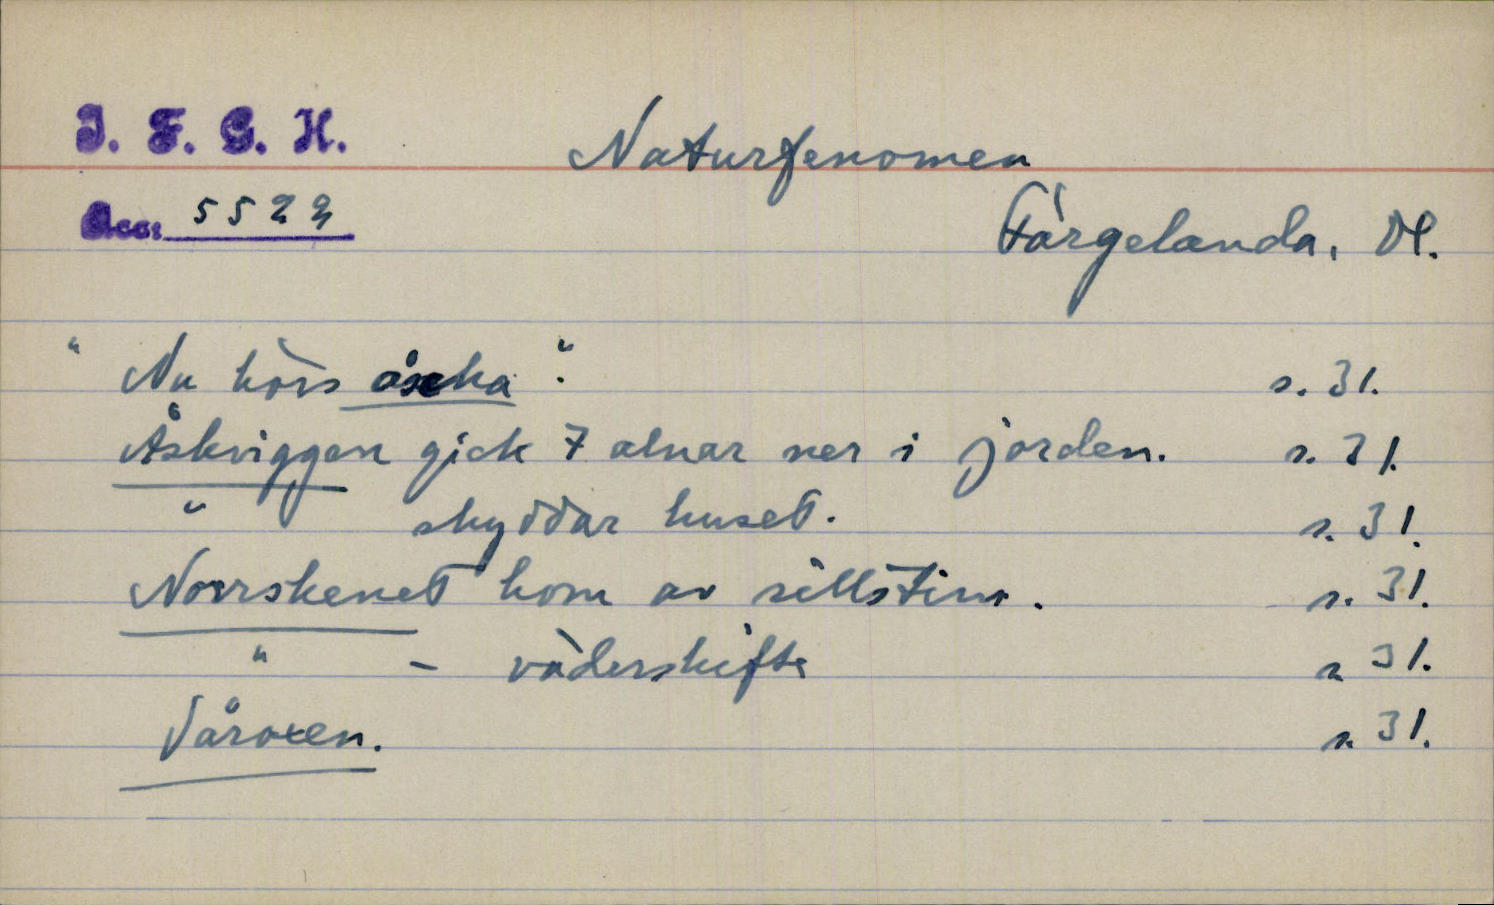 I. F. G. H.
Naturfenomen
Acc: 5522
Färgelanda, Dl.
"Nu hörs åscka". s. 31.
Åskviggen gick 7 alnar ner i jorden. s. 31.
" skyddar huset. s. 31.
Norrskenet kom av sillstim. s. 31.
" – väderskifte s 31.
Våroxen. s. 31.